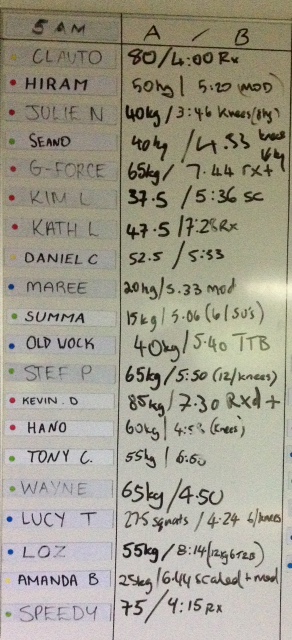 5 AM A / B
CLAUTO 80/4:00 Rx
HIRAM 50kg | 5:20 (MOD)
JULIE N 40kg / 3:46 Knees(8kg)
SEANO 40kg / 4.53 knees 16kg
G-FORCE 65kg/ 7.44 rx+
KIM L 37.5 / 5:36 sc
KATH L 47.5 /7:28Rx
DANIEL C 52.5 / 5:33
MAREE 20kg/5.33 mod
SUMMA 15kg | 5.06 (6/SU's)
OLD VOCK 40kg / 5.40 TTB
STEF P 65kg/5:50 (12/knees)
KEVIN.D 85kg/7.30 RXd +
HANO 60kg | 4:53 (knees)
TONY C. 55kg |
WAYNE 65kg /4.50
LUCY T squats / 4.24 6/knees
LOZ 55kg / 8:14
AMANDA B 25kg/6.44 scaled + mod
SPEEDY 75 / 4:15 Rx